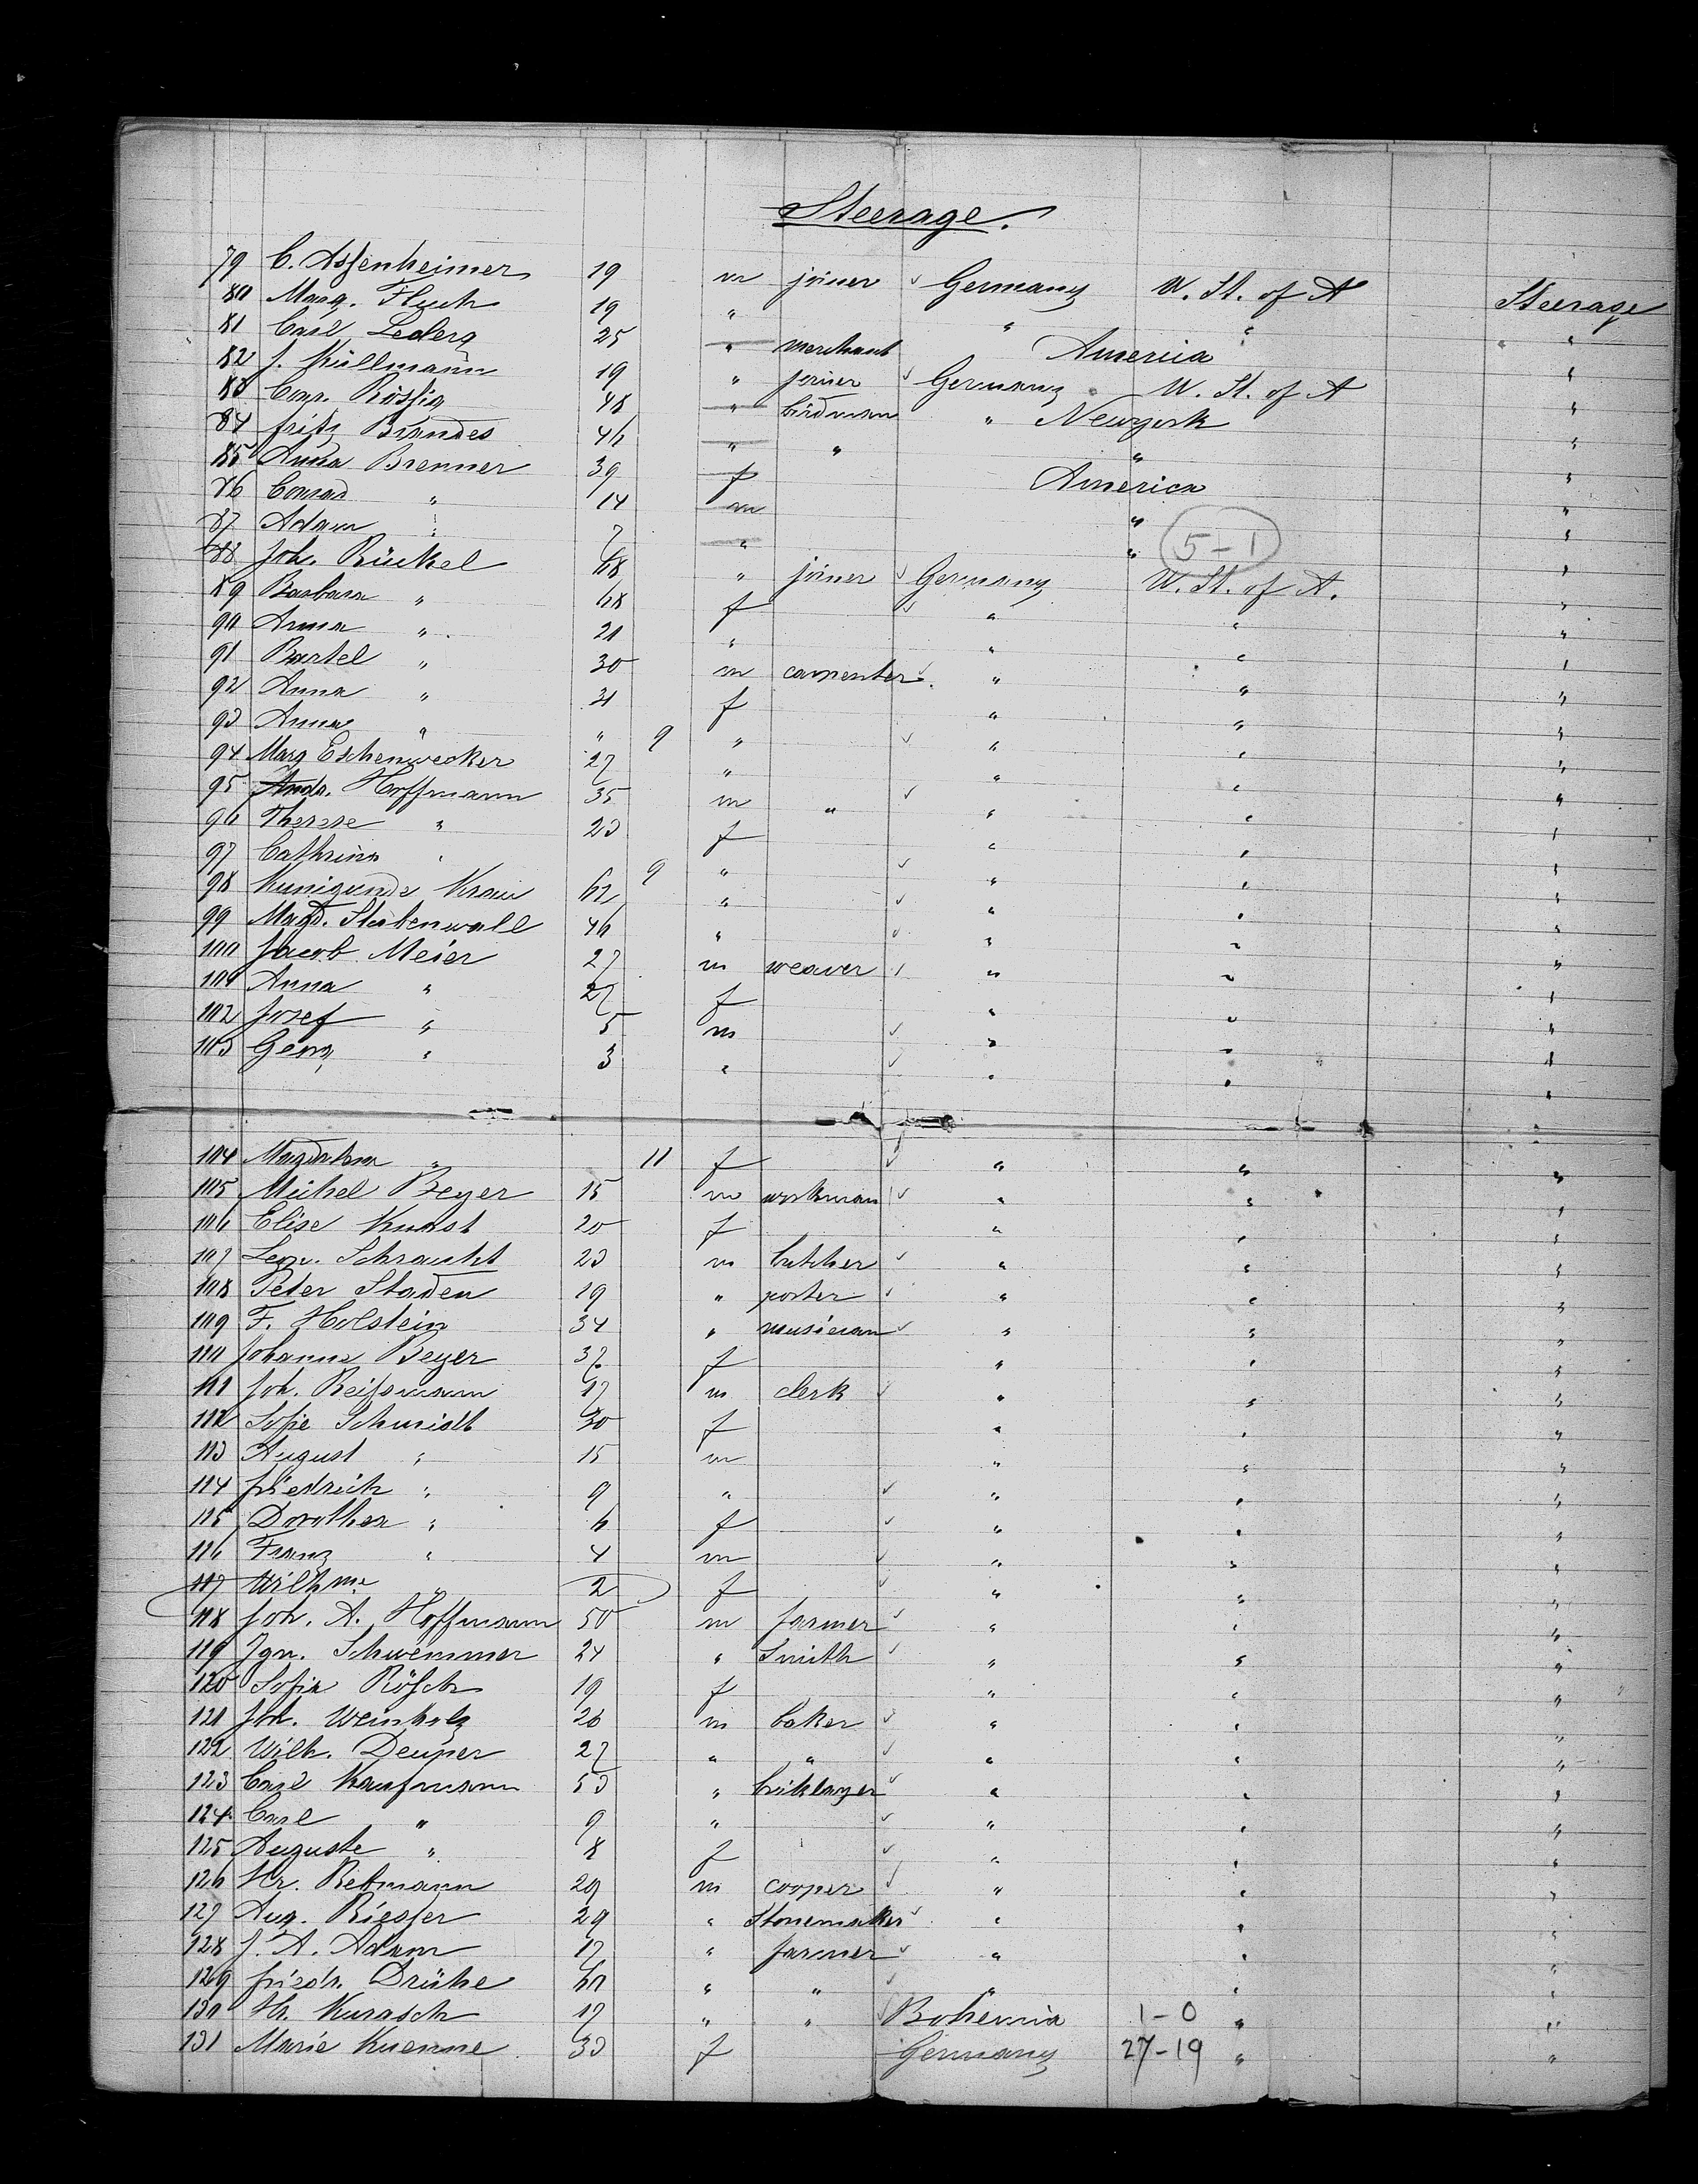 Steerage.
79 C. Assenheimer 19 m joiner ✓ Germany U. St. of A Steerage
80 Marg. Fluch 19 " " " "
81 Carl Lederg 25 " merchant America "
82 J. Küllmann 19 " joiner ✓ Germany U. St. of A "
83 Conr. Rössig 48 " birdman " Newyork "
84 Fritz Brandes 46 " " " "
85 Anna Brenner 39 f America "
86 Conrad " 14 m " "
87 Adam " 7 " " 5-1 "
88 Joh. Rückel 68 " joiner ✓ Germany U. St. of A. "
89 Barbara " 68 f ✓ " " "
90 Anna " 21 " " " "
91 Bartel " 30 m carpenter ✓ " " "
92 Anna " 31 f " " "
93 Anna " " 9 " ✓ " " "
94 Marg Eschenwecker 27 " " " "
95 Andr. Hoffmann 35 m " ✓ " " "
96 Therese " 23 f " " "
97 Cathrina " 9 " ✓ " " "
98 Kunigunde Kraus 62 " ✓ " " "
99 Magd. Stubenwall 46 " ✓ " " "
100 Jacob Meier 27 m weaver ✓ " " "
101 Anna " 27 f " " "
102 Josef " 5 m ✓ " " "
103 Georg " 3 " ✓ " " "
104 Magdalena " 11 f ✓ " " "
105 Michel Beyer 15 m workman ✓ " " "
106 Elise Kunst 20 f " " "
107 Leon. Schraucht 23 m butcher ✓ " " "
108 Peter Staden 19 " porter ✓ " " "
109 F. Holstein 34 " musician ✓ " " "
110 Johanna Beyer 37 f " " "
111 Joh. Reissmann 17 m clerk ✓ " " "
112 Sofie Schmidt 30 f " " "
113 August " 15 m " " "
114 Friedrich " 9 " ✓ " " "
115 Dorothea " 6 f ✓ " " "
116 Franz " 4 m ✓ " " "
117 Wilhme " 2 f ✓ " " "
118 Joh. A. Hoffmann 50 m farmer ✓ " " "
119 Ign. Schwemmer 24 " Smith ✓ " " "
120 Sofia Rösch 19 f " " "
121 Joh. Weinholz 26 m baker ✓ " " "
122 Wilh. Deuper 27 " " ✓ " " "
123 Carl Kaufmann 53 " bricklayer ✓ " " "
124 Carl " 9 " ✓ " " "
125 Auguste " 8 f ✓ " " "
126 Hr. Retmann 29 m cooper ✓ " " "
127 Aug. Riesser 29 " Stonemaker ✓ " " "
128 J. A. Adam 17 " farmer ✓ " " "
129 Friedr. Drühe 60 " " ✓ " " "
130 Hr. Kurasch 17 " " ✓ Bohemia 1-0 " "
131 Marie Kuenne 33 f Germany 27-19 " "